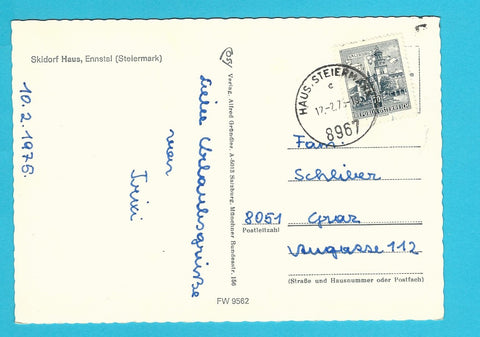 Skidorf Haus, Ennstal (Steiermark)
10.2.1975.
Liebe Urlaubsgrüße
von
Trixi
Verlag Alfred Gründler, A-5013 Salzburg, Münchner Bundesstr. 156
HAUS, STEIERMARK
8967
Fam.
Schliber
8051 Graz
Augasse 112
Postleitzahl
(Straße und Hausnummer oder Postfach)
FW 9562